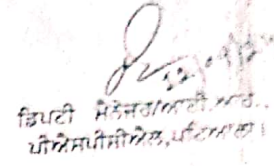 ਡਿਪਟੀ ਮੈਨੇਜਰ/ਆਈ.ਆਰ.,
ਪੀਐਸਪੀਸੀਐਲ, ਪਟਿਆਲਾ।